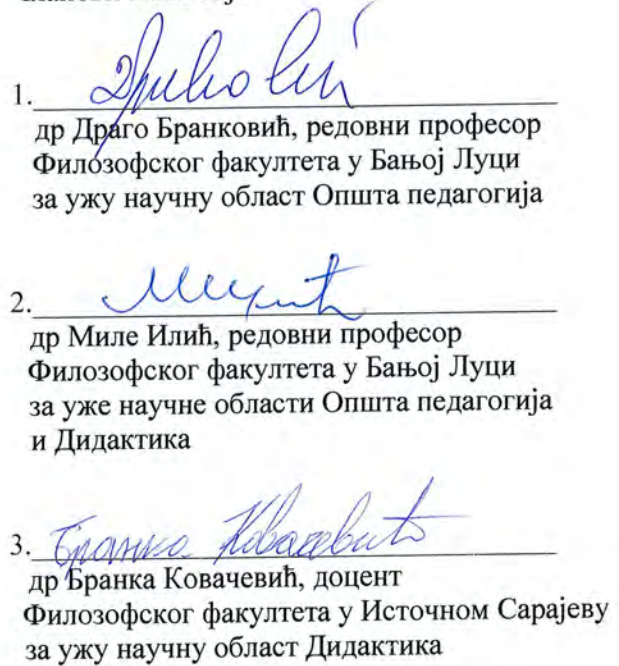 1.
др Драго Бранковић, редовни професор
Филозофског факултета у Бањој Луци
за ужу научну област Општа педагогија
2.
др Миле Илић, редовни професор
Филозофског факултета у Бањој Луци
за уже научне области Општа педагогија
и Дидактика
3. Бранка Ковачевић
др Бранка Ковачевић, доцент
Филозофског факултета у Источном Сарајеву
за ужу научну област Дидактика